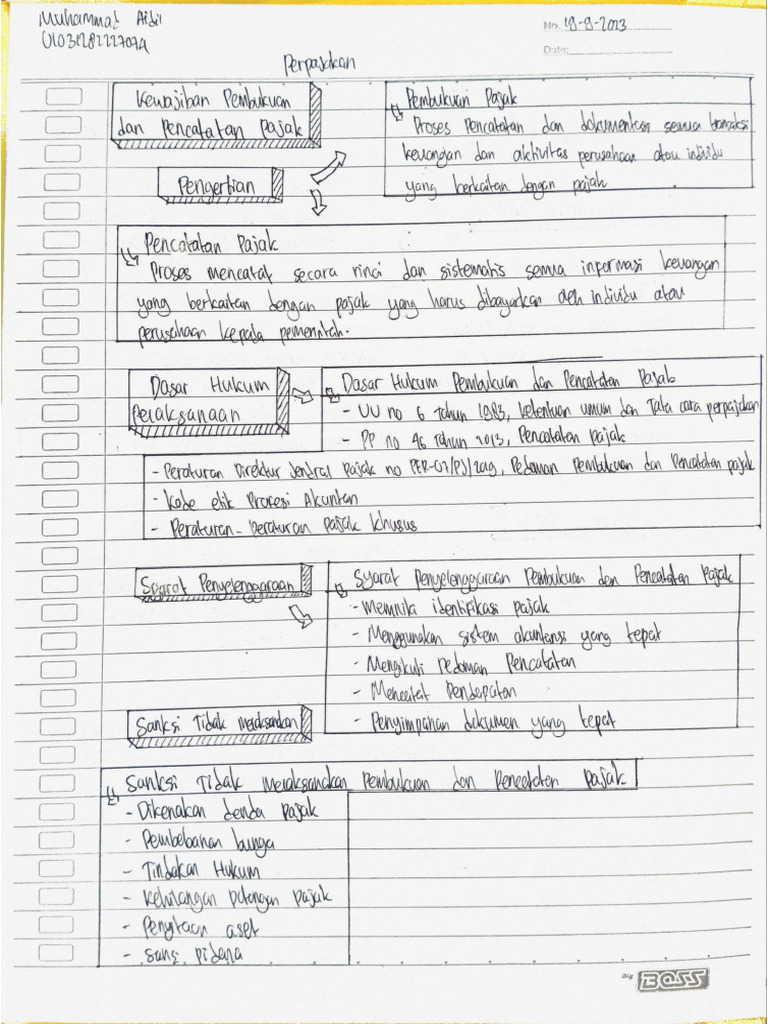 Muhammad Aidil
01031282227074
No. 19-9-2023
Date:
Perpajakan
Kewajiban Pembukuan
dan Pencatatan Pajak
Pengertian
Pembukuan Pajak
Proses Pencatatan dan dokumentasi semua transaksi
keuangan dan aktivitas perusahaan atau individu
yang berkaitan dengan pajak
Pencatatan Pajak
Proses mencatat secara rinci dan sistematis semua informasi keuangan
yang berkaitan dengan pajak yang harus dibayarkan oleh individu atau
perusahaan kepada pemerintah.
Dasar Hukum
Pelaksanaan
Dasar Hukum Pembukuan dan Pencatatan Pajak
- UU no 6 tahun 1983, ketentuan umum dan Tata cara perpajakan
- PP no 46 tahun 2013, Pencatatan pajak
- Peraturan Direktur Jendral Pajak no PER-07/PJ/2019, Pedoman Pembukuan dan Pencatatan pajak
- Kode etik Profesi Akuntan
- Peraturan-peraturan Pajak khusus
Syarat Penyelenggaraan
Syarat Penyelenggaraan Pembukuan dan Pencatatan Pajak
- Memiliki identifikasi pajak
- Menggunakan sistem akuntansi yang tepat
- Mengikuti Pedoman Pencatatan
- Mencatat Pendapatan
- Penyimpanan dokumen yang tepat
Sanksi Tidak melaksanakan
Sanksi Tidak Melaksanakan Pembukuan dan Pencatatan Pajak
- Dikenakan denda Pajak
- Pembebanan bunga
- Tindakan Hukum
- Kehilangan potongan pajak
- Penyitaan aset
- Sangsi pidana
Big BOSS